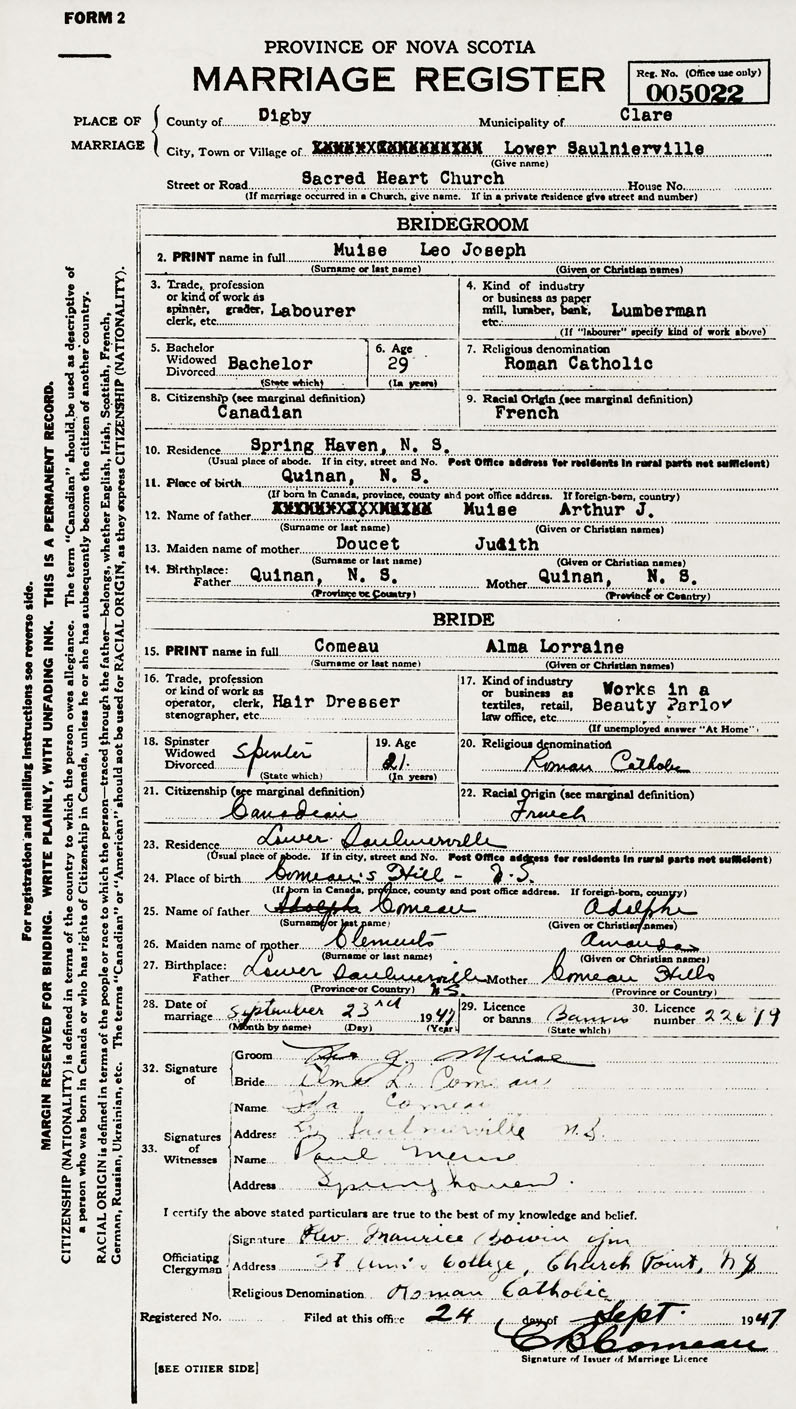 FORM 2
PROVINCE OF NOVA SCOTIA
MARRIAGE REGISTER
Reg. No. (Office use only)
005022
PLACE OF MARRIAGE
County of Digby Municipality of Clare
City, Town or Village of Lower Saulnierville
(Give name)
Street or Road Sacred Heart Church House No.
(If marriage occurred in a Church, give name. If in a private residence give street and number)
BRIDEGROOM
2. PRINT name in full Muise Leo Joseph
(Surname or last name) (Given or Christian names)
3. Trade, profession or kind of work as spinner, grader, clerk, etc. Labourer
4. Kind of industry or business as paper mill, lumber, bank, etc. Lumberman
(If "labourer" specify kind of work above)
5. Bachelor Widowed Divorced Bachelor
(State which)
6. Age 29
(In years)
7. Religious denomination
Roman Catholic
8. Citizenship (see marginal definition)
Canadian
9. Racial Origin (see marginal definition)
French
10. Residence Spring Haven, N. S.
(Usual place of abode. If in city, street and No. Post Office address for residents in rural parts not sufficient)
11. Place of birth Quinan, N. S.
(If born in Canada, province, county and post office address. If foreign-born, country)
12. Name of father Muise Arthur J.
(Surname or last name) (Given or Christian names)
13. Maiden name of mother Doucet Judith
(Surname or last name) (Given or Christian names)
14. Birthplace: Father Quinan, N. S. Mother Quinan, N. S.
(Province or Country) (Province or Country)
BRIDE
15. PRINT name in full Comeau Alma Lorraine
(Surname or last name) (Given or Christian names)
16. Trade, profession or kind of work as operator, clerk, stenographer, etc. Hair Dresser
17. Kind of industry or business as textiles, retail, law office, etc. Works in a Beauty Parlor
(If unemployed answer "At Home")
18. Spinster Widowed Divorced Spinster
(State which)
19. Age 21
(In years)
20. Religious denomination
Roman Catholic
21. Citizenship (see marginal definition)
Canadian
22. Racial Origin (see marginal definition)
French
23. Residence Lower Saulnierville
(Usual place of abode. If in city, street and No. Post Office address for residents in rural parts not sufficient)
24. Place of birth Comeau's Hill - N.S.
(If born in Canada, province, county and post office address. If foreign-born, country)
25. Name of father Adolphe Comeau Adolphe
(Surname or last name) (Given or Christian names)
26. Maiden name of mother Clements Amanda
(Surname or last name) (Given or Christian names)
27. Birthplace: Father Lower Saulnierville N.S. Mother Comeau Hills
(Province or Country) (Province or Country)
28. Date of marriage September 23rd 1947
(Month by name) (Day) (Year)
29. Licence or banns Banns
(State which)
30. Licence number
32. Signature of
Groom Leo J. Muise
Bride Alma L. Comeau
33. Signatures of Witnesses
Name Ida Comeau
Address L. Saulnierville N.S.
Name Paul Meuse
Address Springhaven
I certify the above stated particulars are true to the best of my knowledge and belief.
Officiating Clergyman
Signature Rev. Maurice
Address St Ann's College, Church Point, N.S.
Religious Denomination Roman Catholic
Registered No. Filed at this office 24 day of Sept. 1947
Comeau
Signature of Issuer of Marriage Licence
[SEE OTHER SIDE]
For registration and mailing instructions see reverse side.
MARGIN RESERVED FOR BINDING. WRITE PLAINLY, WITH UNFADING INK. THIS IS A PERMANENT RECORD.
CITIZENSHIP (NATIONALITY) is defined in terms of the country to which the person owes allegiance. The term "Canadian" should be used as descriptive of
a person who was born in Canada or who has rights of Citizenship in Canada, unless he or she has subsequently become the citizen of another country.
RACIAL ORIGIN is defined in terms of the people or race to which the person—traced through the father—belongs, whether English, Irish, Scottish, French,
German, Russian, Ukrainian, etc. The terms "Canadian" or "American" should not be used for RACIAL ORIGIN, as they express CITIZENSHIP (NATIONALITY).